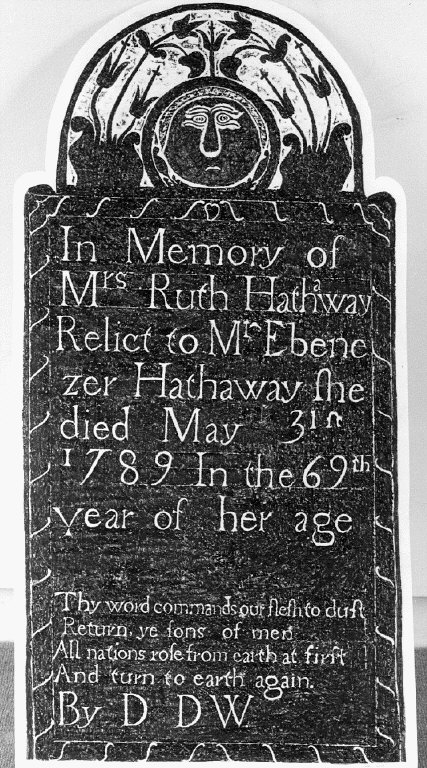 In Memory of
Mrs Ruth Hathaway
Relict to Mr Ebene
zer Hathaway ſhe
died May 31ſt
1789 In the 69th
year of her age
Thy word commands our fleſh to duſt
Return, ye ſons of men
All nations roſe from earth at firſt
And turn to earth again.
By D D W